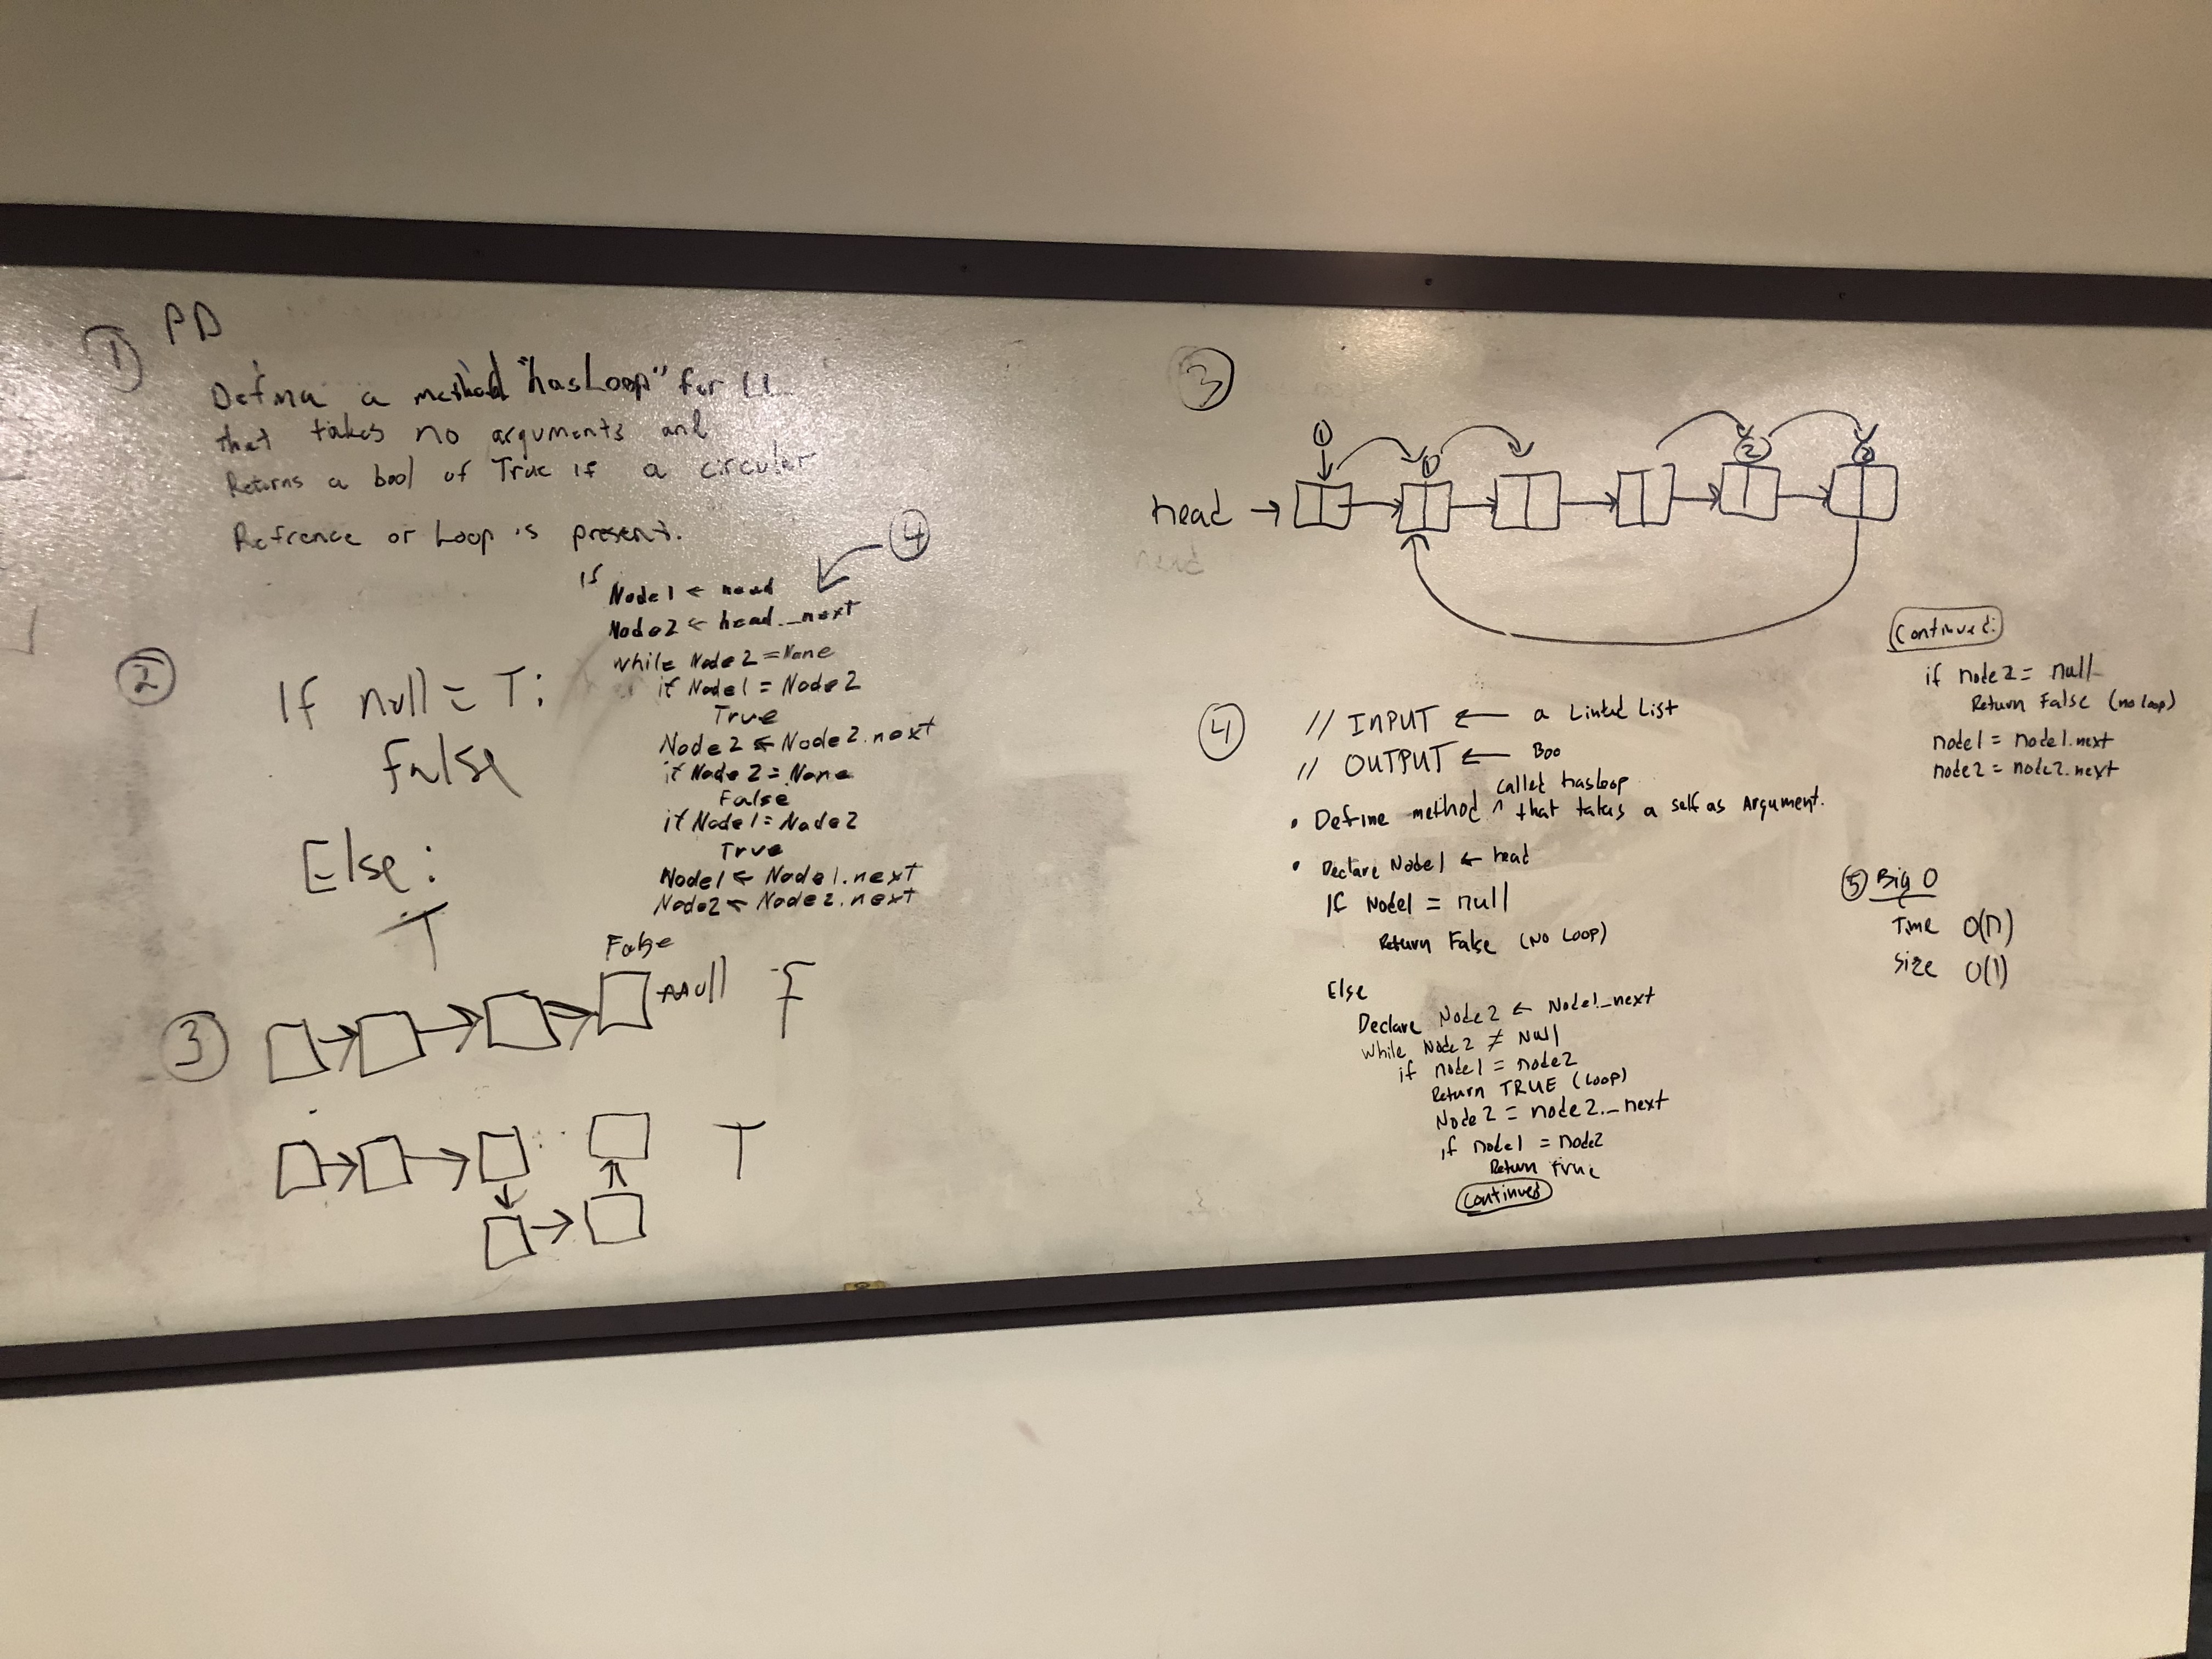 ① PD
Define a method "hasLoop" for LL
that takes no arguments and
Returns a bool of True if a circular
Refrence or Loop is present.
②
If null = T:
false
Else:
T
④
If
Node1 ← head
Node2 ← head._next
while Node2 = None
if Node1 = Node2
True
Node2 ← Node2.next
if Node2 = None
False
if Node1 = Node2
True
Node1 ← Node1.next
Node2 ← Node2.next
③
False
null F
T
③
① ① ②
head →
head
④
// INPUT ← a Linked List
// OUTPUT ← Boo
called hasloop
• Define method ^ that takes a self as Argument.
• Declare Node1 ← head
If Node1 = null
Return False (No Loop)
Else
Declare Node2 ← Node1._next
while Node2 ≠ Null
if node1 = node2
Return TRUE (Loop)
Node2 = node2._next
if node1 = node2
Return true
Continued
Continued:
if node2 = null
Return False (no loop)
node1 = node1.next
node2 = node2.next
⑤ Big O
Time O(n)
Size O(1)